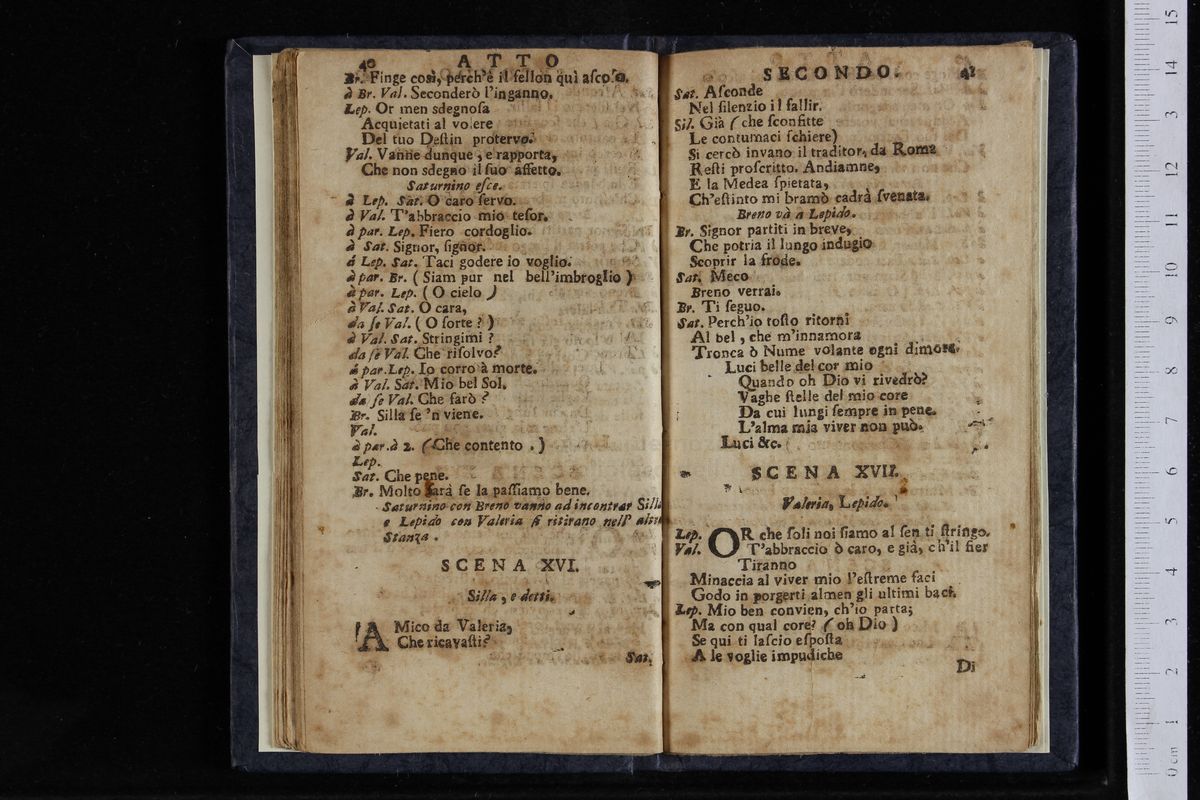 40 ATTO
Br. Finge così, perch'è il fellon quì ascoso.
à Br. Val. Seconderò l'inganno.
Lep. Or men sdegnosa
Acquietati al volere
Del tuo Destin protervo.
Val. Vanne dunque, e rapporta,
Che non sdegno il suo affetto.
Saturnino esce.
à Lep. Sat. O caro servo.
à Val. T'abbraccio mio tesor.
à par. Lep. Fiero cordoglio.
à Sat. Signor, signor.
á Lep. Sat. Taci godere io voglio.
à par. Br. (Siam pur nel bell'imbroglio)
à par. Lep. (O cielo)
à Val. Sat. O cara,
da se Val. (O sorte?)
à Val. Sat. Stringimi?
da sè Val. Che risolvo?
à par. Lep. Io corro à morte.
à Val. Sat. Mio bel Sol.
da se Val. Che farò?
Br. Silla se 'n viene.
Val.
à par. à 2. (Che contento.)
Lep.
Sat. Che pene.
Br. Molto sarà se la passiamo bene.
Saturnino con Breno vanno ad incontrar Silla
e Lepido con Valeria si ritirano nell' altra
Stanza.
SCENA XVI.
Silla, e detti.
AMico da Valeria,
Che ricavasti?
Sat.
SECONDO. 41
Sat. Asconde
Nel silenzio il fallir.
Sil. Già (che sconfitte
Le contumaci schiere)
Si cercò invano il traditor, da Roma
Resti proscritto. Andiamne,
E la Medea spietata,
Ch'estinto mi bramò cadrà svenata.
Breno và a Lepido.
Br. Signor partiti in breve,
Che potria il lungo indugio
Scoprir la frode.
Sat. Meco
Breno verrai.
Br. Ti seguo.
Sat. Perch'io tosto ritorni
Al bel, che m'innamora
Tronca ò Nume volante ogni dimora.
Luci belle del cor mio
Quando oh Dio vi rivedrò?
Vaghe stelle del mio core
Da cui lungi sempre in pene.
L'alma mia viver non può.
Luci &c.
SCENA XVII.
Valeria, Lepido.
Lep. OR che soli noi siamo al sen ti stringo.
Val. T'abbraccio ò caro, e già, ch'il fier
Tiranno
Minaccia al viver mio l'estreme faci
Godo in porgerti almen gli ultimi baci.
Lep. Mio ben convien, ch'io parta;
Ma con qual core? (oh Dio)
Se qui ti lascio esposta
A le voglie impudiche
Di